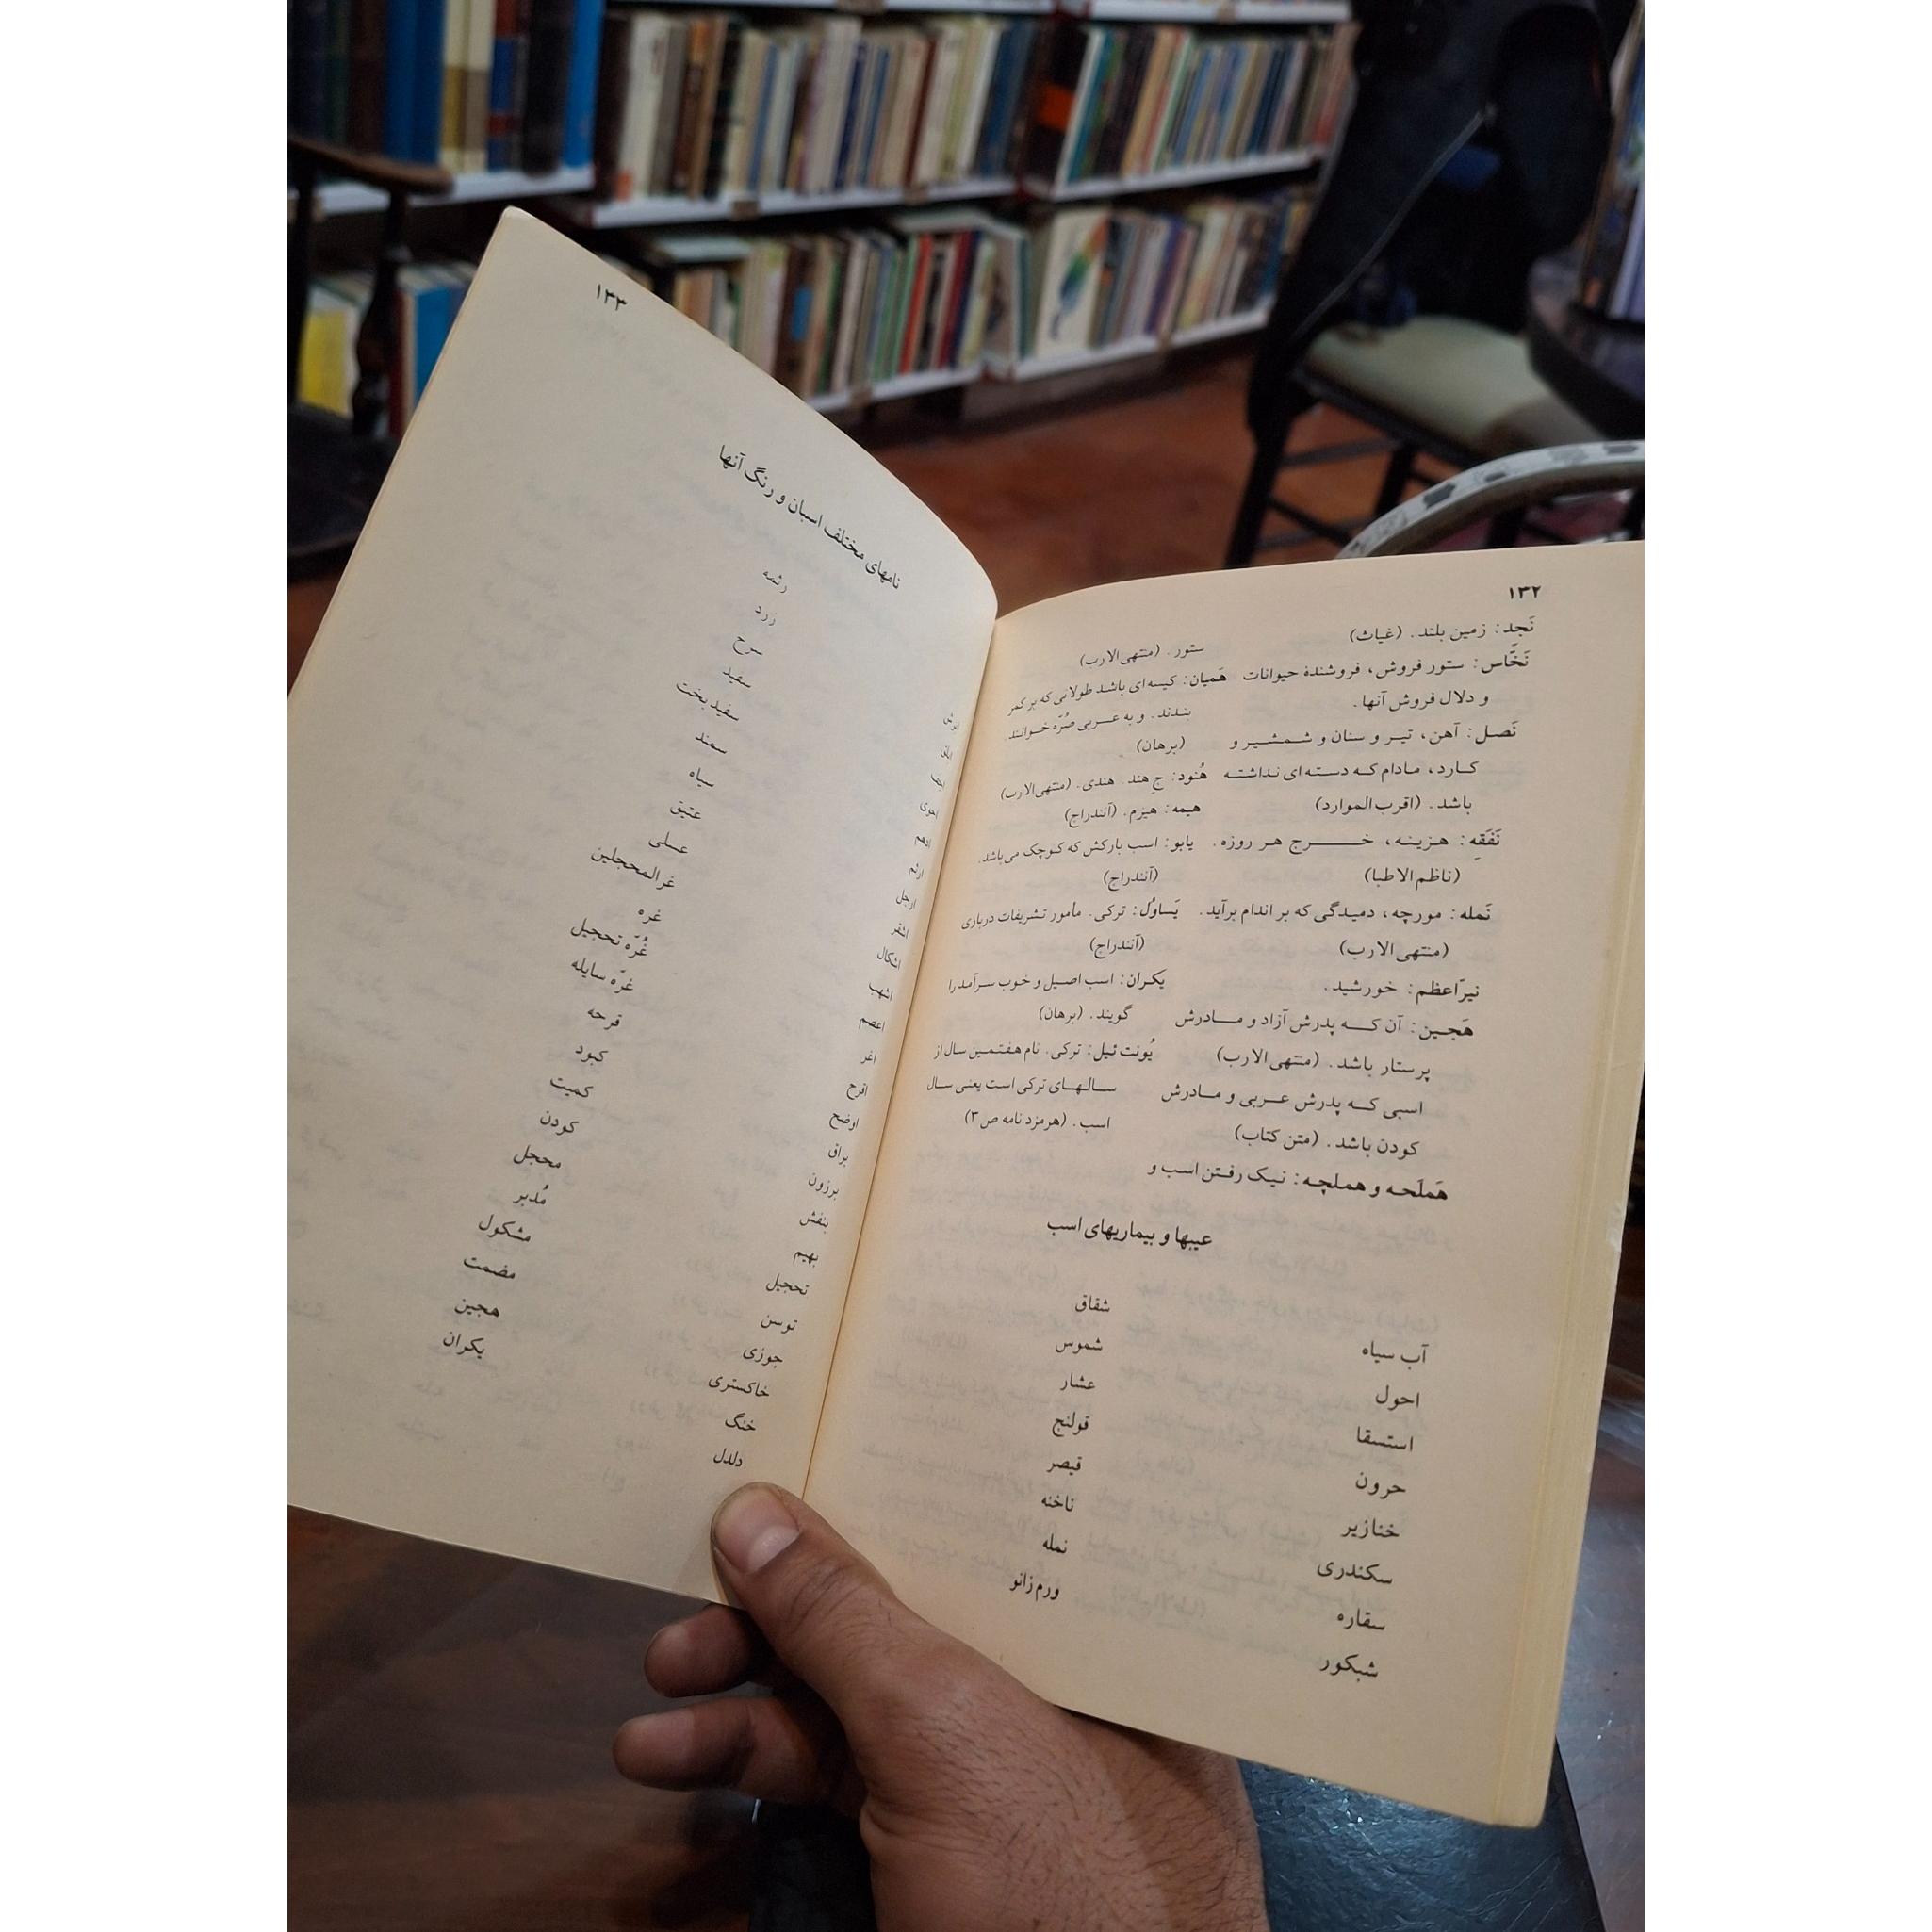 ۱۳۲
نَجِد: زمین بلند. (غیاث)
نَخّاس: ستور فروش، فروشندۀ حیوانات
و دلال فروش آنها.
نَصل: آهن، تیر و سنان و شمشیر و
کارد، مادام که دسته ای نداشته
باشد. (اقرب الموارد)
نَفَقَه: هزینه، خرج هر روزه.
(ناظم الاطبا)
نَمله: مورچه، دمیدگی که بر اندام برآید.
(منتهی الارب)
نیرّاعظم: خورشید.
هَجین: آن که پدرش آزاد و مادرش
پرستار باشد. (منتهی الارب)
اسبی که پدرش عربی و مادرش
کودن باشد. (متن کتاب)
هَملَحه و هملچه: نیک رفتن اسب و
ستور. (منتهی الارب)
هَمیان: کیسه ای باشد طولانی که بر کمر
بندند. و به عربی صُرّه خوانند.
(برهان)
هُنود: جِ هند. هندی. (منتهی الارب)
هیمه: هیزم. (آنندراج)
یابو: اسب بارکش که کوچک می باشد.
(آنندراج)
یَساوُل: ترکی. مأمور تشریفات درباری
(آنندراج)
یکران: اسب اصیل و خوب سرآمد را
گویند. (برهان)
یُونت ئیل: ترکی. نام هفتمین سال از
سالهای ترکی است یعنی سال
اسب. (هرمزد نامه ص ۳)
عیبها و بیماریهای اسب
آب سیاه
احول
استسقا
حرون
خنازیر
سکندری
سقاره
شبکور
شقاق
شموس
عشار
قولنج
قیصر
ناخنه
نمله
ورم زانو
۱۳۳
نامهای مختلف اسبان و رنگ آنها
ابرش
ابلق
احوی
ادهم
ارثم
ارجل
اشقر
اشکال
اشهب
اعصم
اغر
اقرح
اوضح
براق
برزون
بنفش
بهیم
تحجیل
توسن
جوزی
خاکستری
خنگ
دلدل
رثمه
زرد
سرخ
سفید
سفید بخت
سمند
سیاه
عتیق
عسلی
غرالمحجلین
غره
غُرّه تحجیل
غرّه سایله
قرحه
کبود
کمیت
کودن
محجل
مُدبر
مشکول
مضمت
هجین
یکران